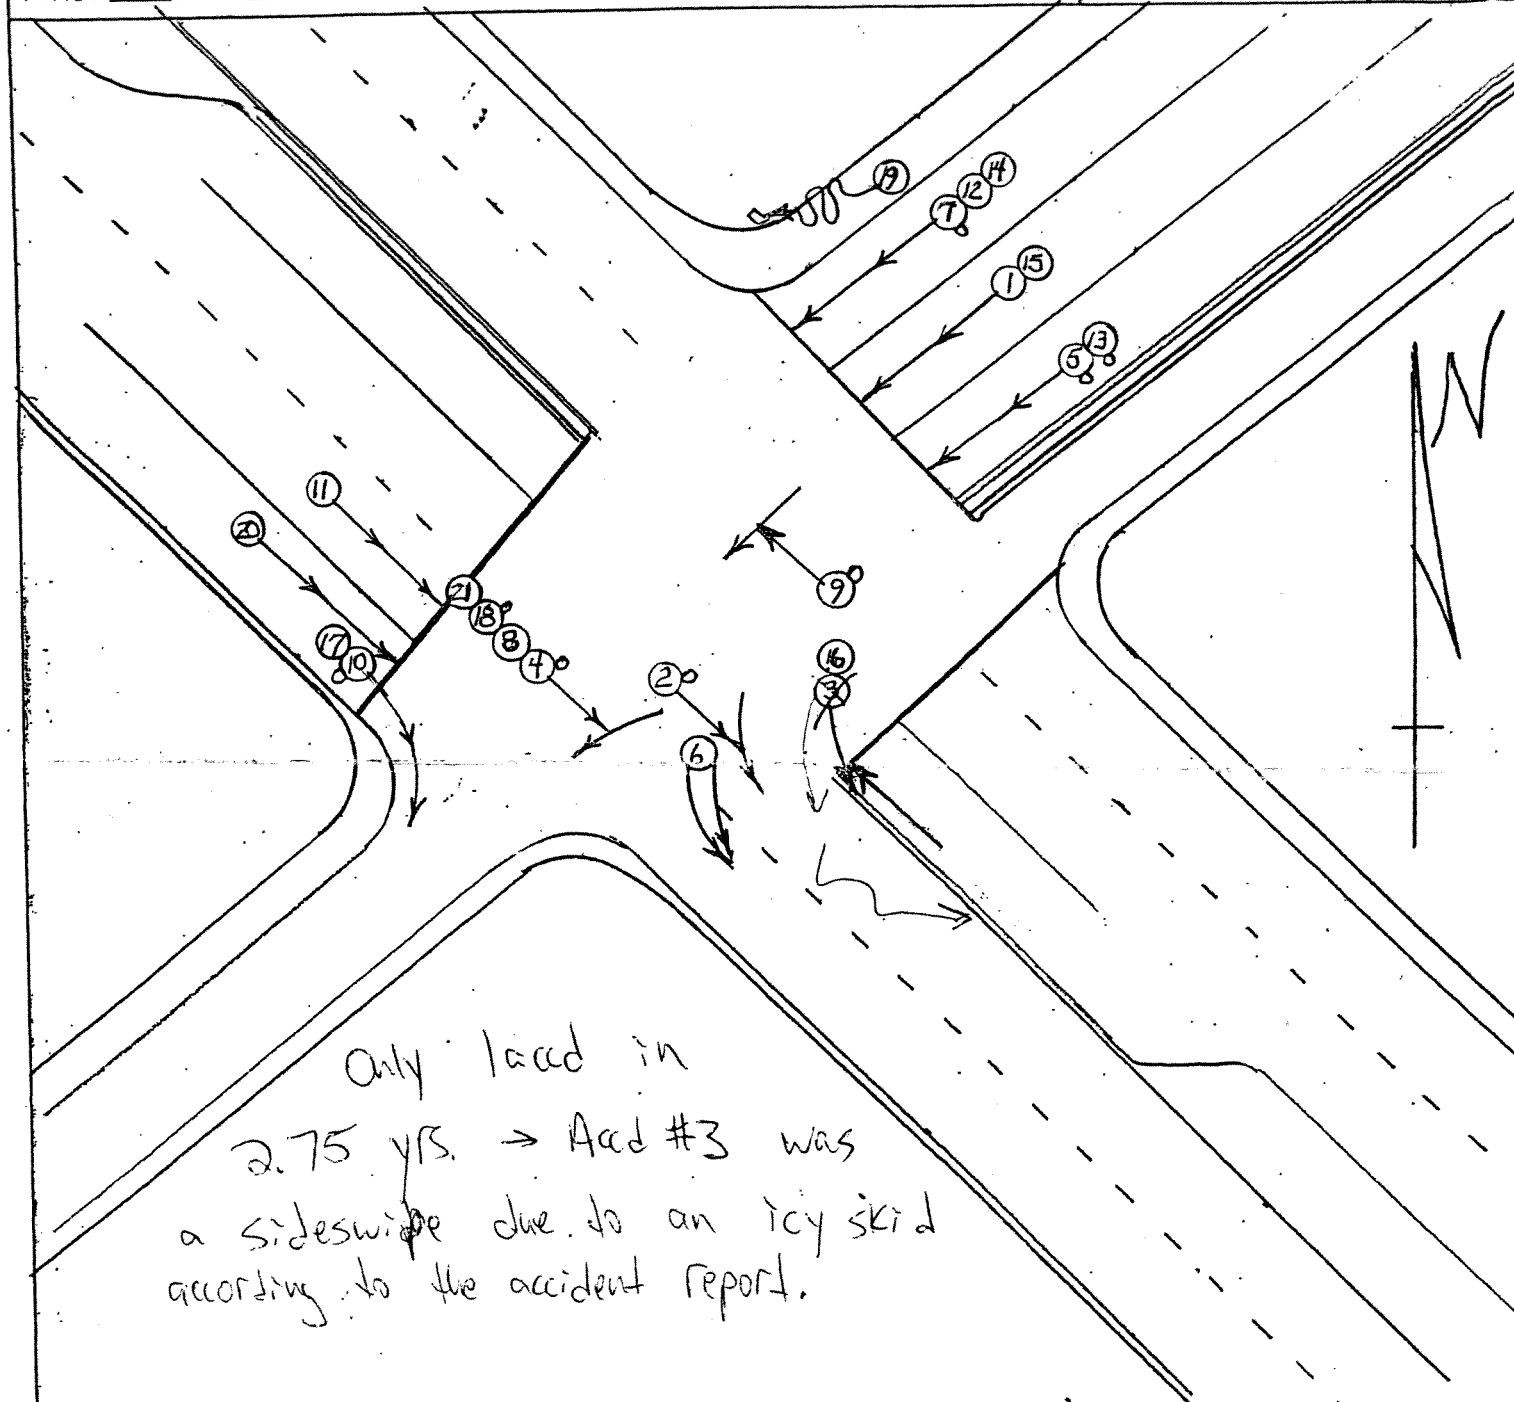 19
14
12
7
15
1
13
5
N
11
20
21
18
8
4
9
17
10
2
16
3
6
Only 1 accd in
2.75 yrs. → Accd #3 was
a sideswipe due to an icy skid
according to the accident report.